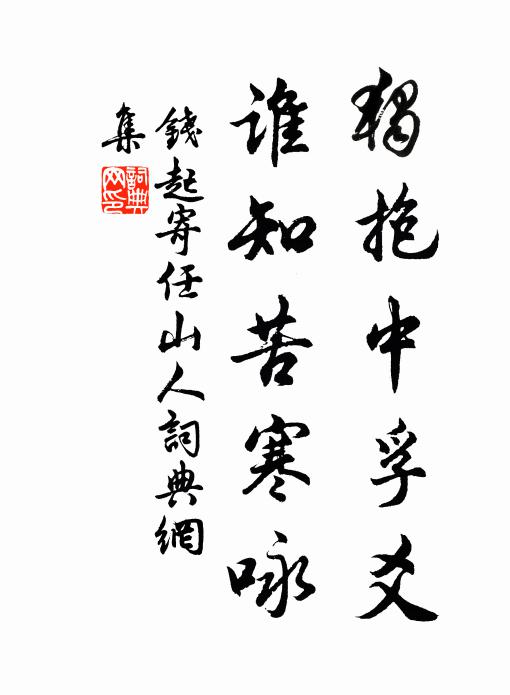 獨抱中孚爻
誰知苦寒咏
錢起寄任山人詞典網
集
詞典网印